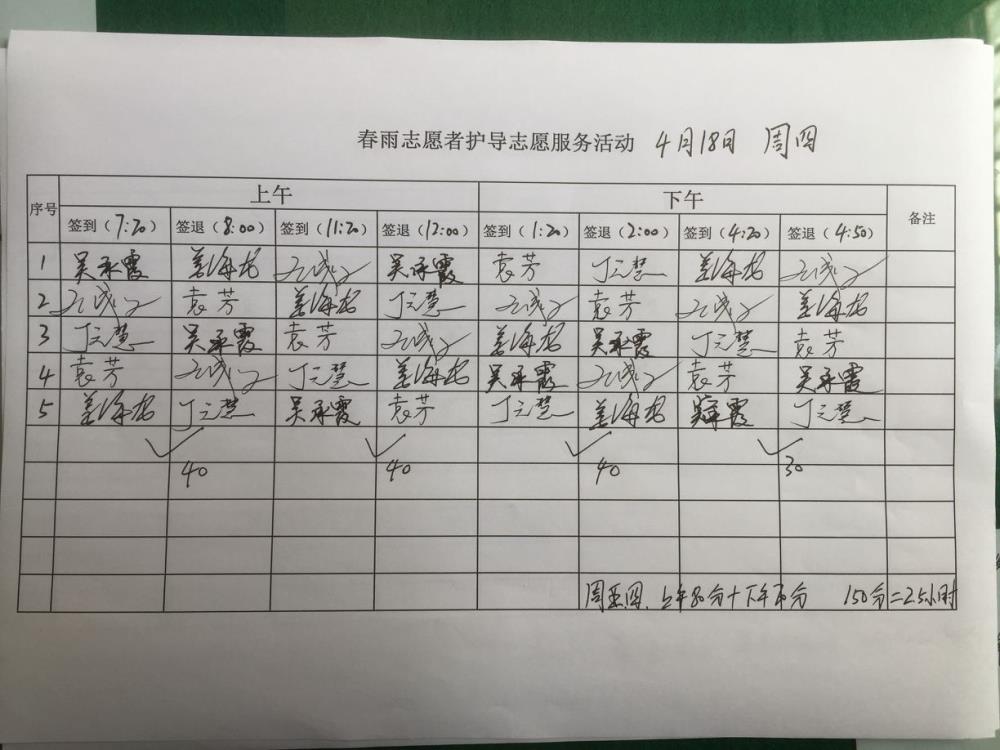 春雨志愿者护导志愿服务活动 4月18日 周四
序号 上午 下午 备注
签到(7:20) 签退(8:00) 签到(11:20) 签退(12:00) 签到(1:20) 签退(2:00) 签到(4:20) 签退(4:50)
1 吴承霞 姜海龙 吴承霞 袁芳 丁元慧 姜海龙
2 袁芳 姜海龙 丁元慧 袁芳 姜海龙
3 丁元慧 吴承霞 袁芳 姜海龙 吴承霞 丁元慧 袁芳
4 袁芳 丁元慧 姜海龙 吴承霞 袁芳 吴承霞
5 姜海龙 丁元慧 吴承霞 袁芳 丁元慧 姜海龙 吴承霞 丁元慧
40 40 40 30
周至四, 上午80分+下午70分 150分=2.5小时